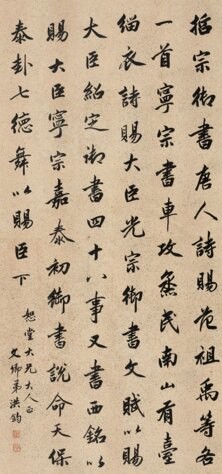 哲宗御書唐人詩賜范祖禹等各
一首寧宗書車攻烝民南山有臺
緇衣詩賜大臣光宗書文賦以賜
大臣紹定御書四十八事又書西銘以
賜大臣寧宗嘉泰初御書說命天保
泰卦七德舞以賜臣下
恕堂大兄大人正
文卿弟洪鈞